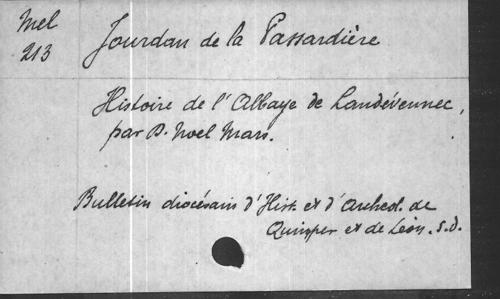 Mel
213
Jourdan de la Passardière
Histoire de l'Abbaye de Landévennec,
par D. Noel Mars.
Bulletin diocésain d'Hist. et d'Archeol. de
Quimper et de Léon. s.d.